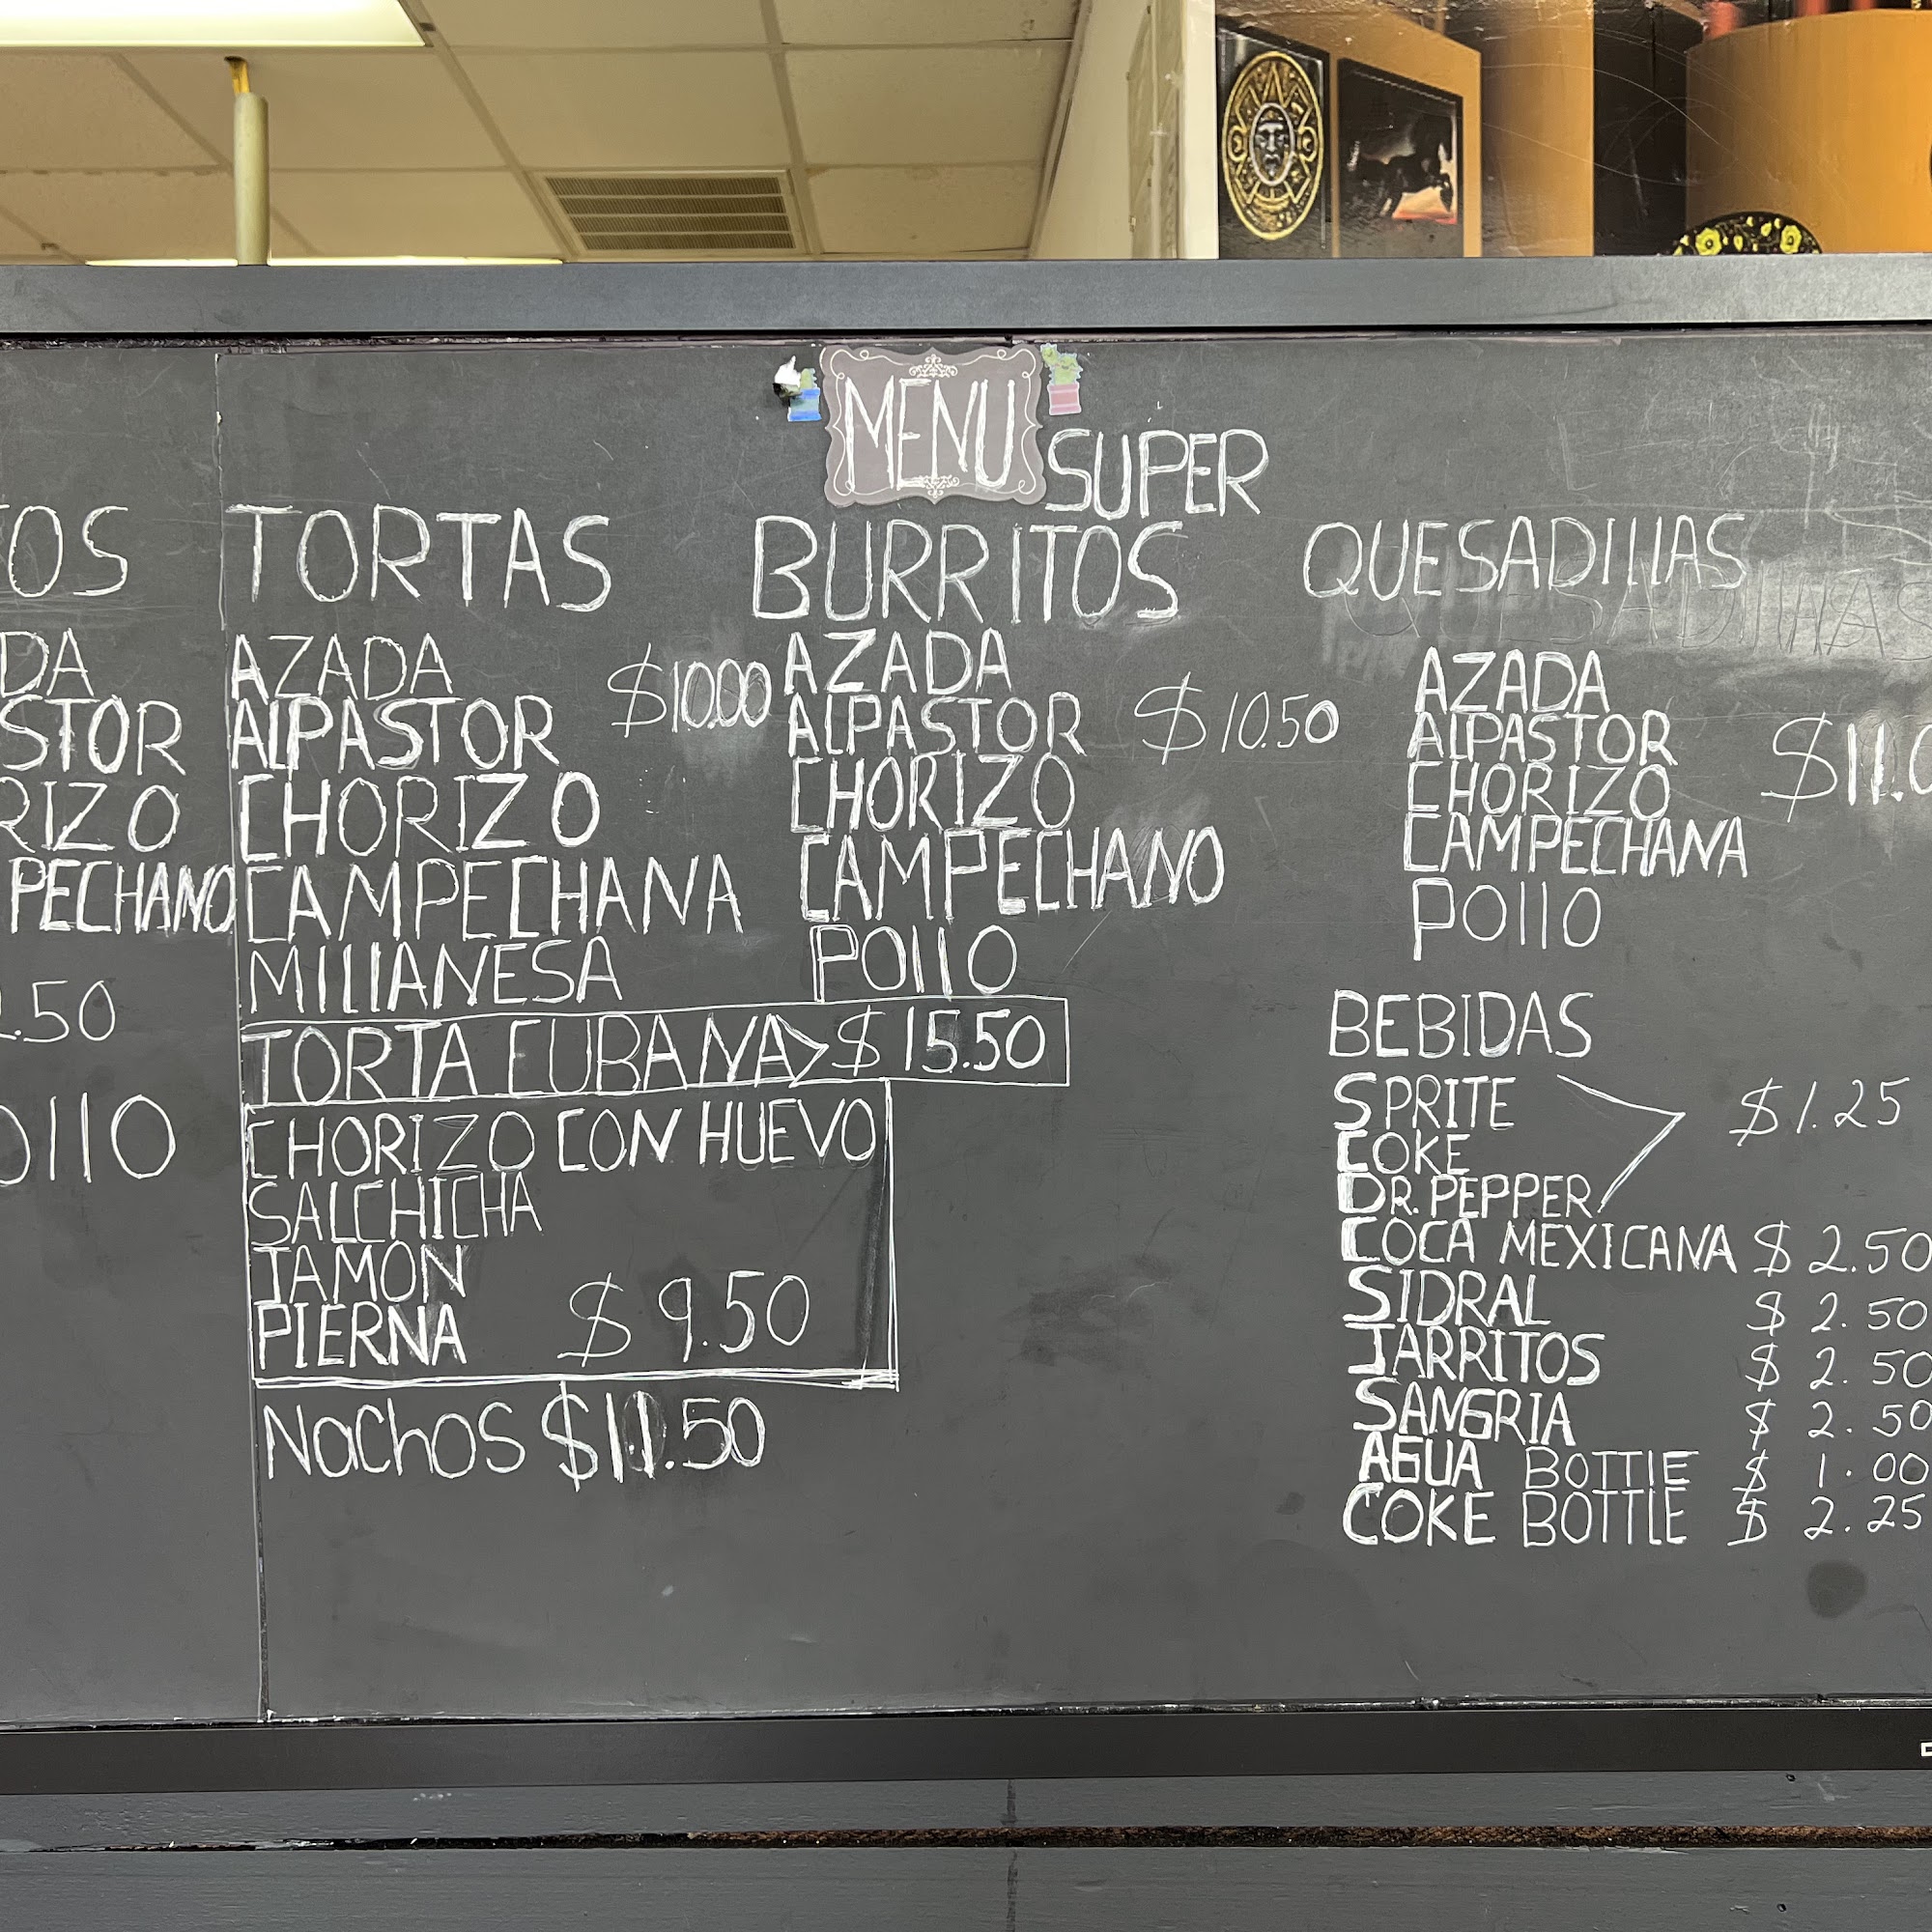 MENU
SUPER
TORTAS
AZADA
AlPASTOR $10.00
CHORIZO
CAMPECHANA
MIllANESA
TORTA CUBANA > $ 15.50
CHORIZO CON HUEVO
SALCHICHA
JAMON
PIERNA $ 9.50
NachoS $11.50
BURRITOS
AZADA
AlPASTOR $10.50
CHORIZO
CAMPECHANO
POllO
QUESADIllAS
AZADA
AlPASTOR
CHORIZO
CAMPECHANA
POllO
BEBIDAS
SPRITE
COKE $1.25
DR. PEPPER
COCA MEXICANA $ 2.50
SIDRAL $ 2.50
JARRITOS $ 2.50
SANGRIA $ 2.50
AGUA BOTTlE $ 1.00
COKE BOTTLE $ 2.25